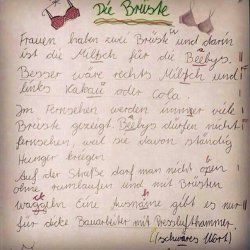 Die Brüste
Frauen haben zwei Brüste und darin
ist die Miltsch für die Beebys.
Besser wäre rechts Miltsch und
links Kakau oder Cola.
Im Fernsehen werden immer viele
Brüste gezeigt. Beebys dürfen nicht
fernsehen, weil sie davon ständig
Hunger kriegen.
Auf der Straße darf man nicht open
ohne rumlaufen und mit Brüsten
waggeln. Eine Ausnäme gibt es nur
für dicke Bauarbeiter mit Presslufthammer.
(schweres Wort)